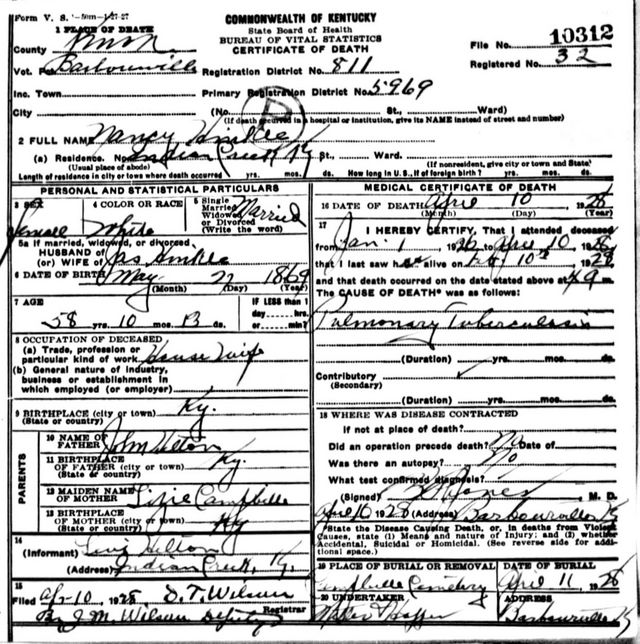 Form V. S.
COMMONWEALTH OF KENTUCKY
State Board of Health
BUREAU OF VITAL STATISTICS
CERTIFICATE OF DEATH
1 PLACE OF DEATH
County Knox
File No. 10312
Registered No. 32
Vot. Barbourville
Registration District No. 811
Inc. Town
Primary Registration District No. 5969
City
(No. St., Ward)
(If death occurred in a hospital or institution, give its NAME instead of street and number)
2 FULL NAME Nancy Hinkle
(a) Residence. No. Indian Creek Ky St., Ward.
(Usual place of abode)
(If nonresident, give city or town and State)
Length of residence in city or town where death occurred yrs. mos. ds. How long in U. S., if of foreign birth? yrs. mos. ds.
PERSONAL AND STATISTICAL PARTICULARS
3 SEX
Female
4 COLOR OR RACE
White
5 Single
Married
Widowed
or Divorced
(Write the word)
Married
5a If married, widowed, or divorced
HUSBAND of
(or) WIFE of Jas Hinkle
6 DATE OF BIRTH May 1869
(Month) (Day) (Year)
7 AGE
58 yrs. 10 mos. 13 ds.
IF LESS than 1
day hrs.
or min.?
8 OCCUPATION OF DECEASED
(a) Trade, profession or
particular kind of work House Wife
(b) General nature of industry,
business or establishment in
which employed (or employer)
9 BIRTHPLACE (city or town) Ky.
(State or country)
PARENTS
10 NAME OF
FATHER John Hilton
11 BIRTHPLACE
OF FATHER (city or town) Ky.
(State or country)
12 MAIDEN NAME
OF MOTHER Campbelle
13 BIRTHPLACE
OF MOTHER (city or town) Ky
(State or country)
14
(Informant) Hilton
(Address) Indian Creek, Ky.
15
Filed Apr-10 1928 D. T. Wilson
Registrar
By J M. Wilson Deputy
MEDICAL CERTIFICATE OF DEATH
16 DATE OF DEATH April 10 1928
(Month) (Day) (Year)
17
I HEREBY CERTIFY, That I attended deceased
from Jan. 1 1928 to Apr 10 1928
that I last saw her alive on 10th 1928
and that death occurred on the date stated above at m
The CAUSE OF DEATH* was as follows:
Pulmonary Tuberculosis
(Duration) yrs. mos. ds.
Contributory
(Secondary)
(Duration) yrs. mos. ds.
18 WHERE WAS DISEASE CONTRACTED
if not at place of death?
Did an operation precede death? No Date of
Was there an autopsy? No
What test confirmed diagnosis?
(Signed) Jones M. D.
April 10 1928 (Address) Barbourville Ky
*State the Disease Causing Death, or, in deaths from Violent
Causes, state (1) Means and nature of Injury; and (2) whether
Accidental, Suicidal or Homicidal. (See reverse side for addi-
tional space.)
19 PLACE OF BURIAL OR REMOVAL
Campbelle Cemetery
DATE OF BURIAL
April 11 1928
20 UNDERTAKER
ADDRESS
Barbourville Ky